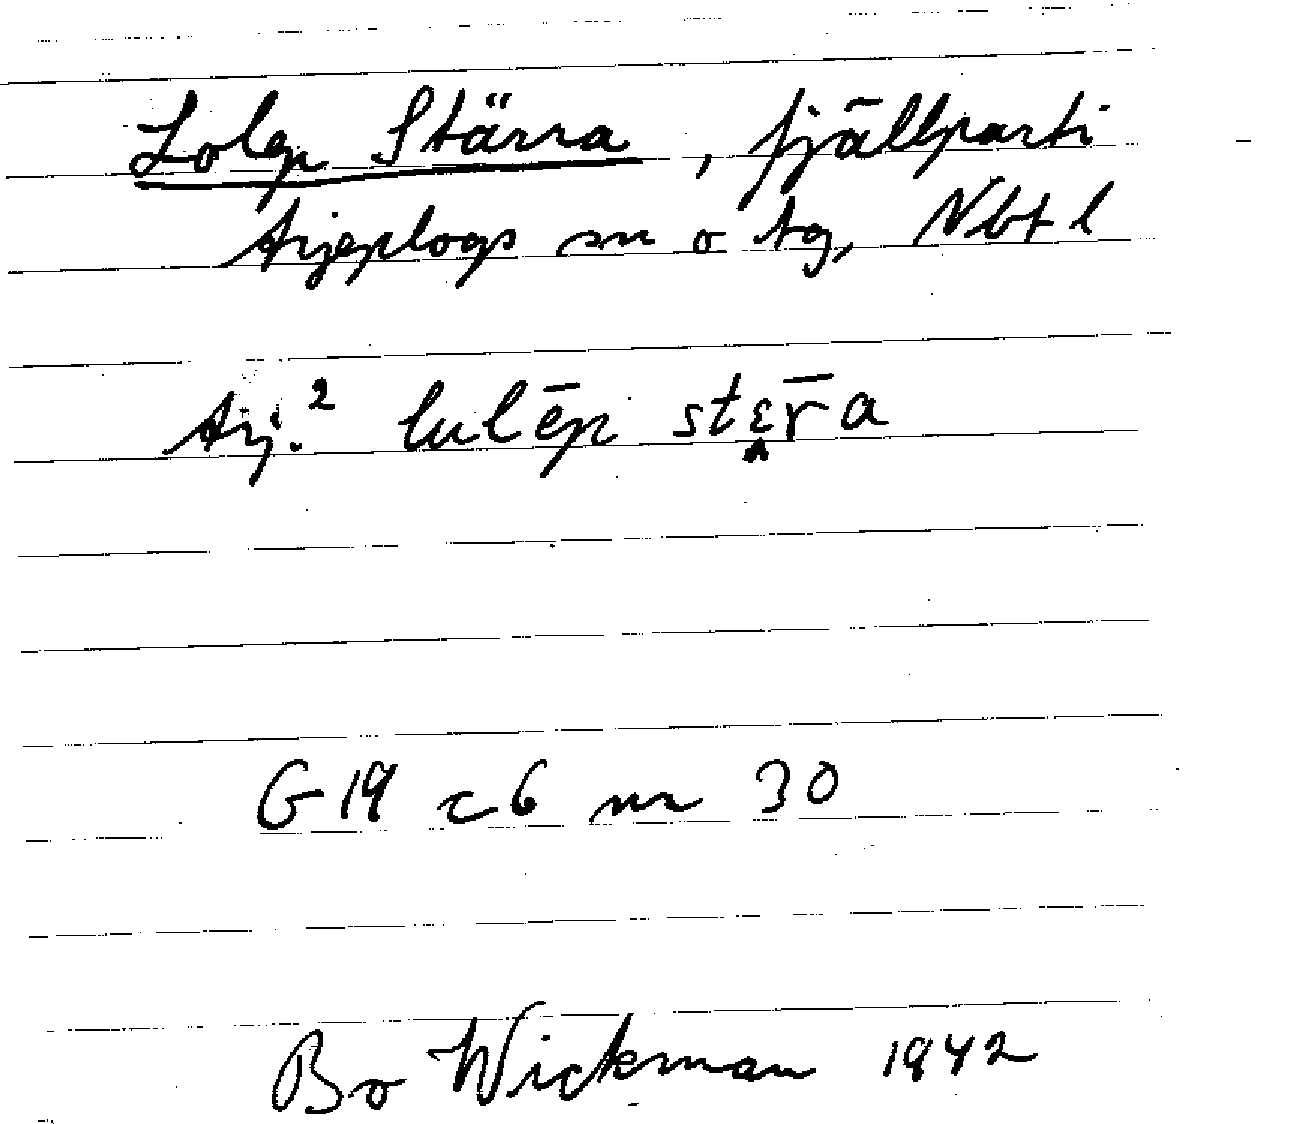 Lolep Stärra, fjällparti
Arjeplogs sn o tg, Nbt l
Arj.² lulēp stɛr̄a
G 19 c 6 nr 30
Bo Wickman 1942